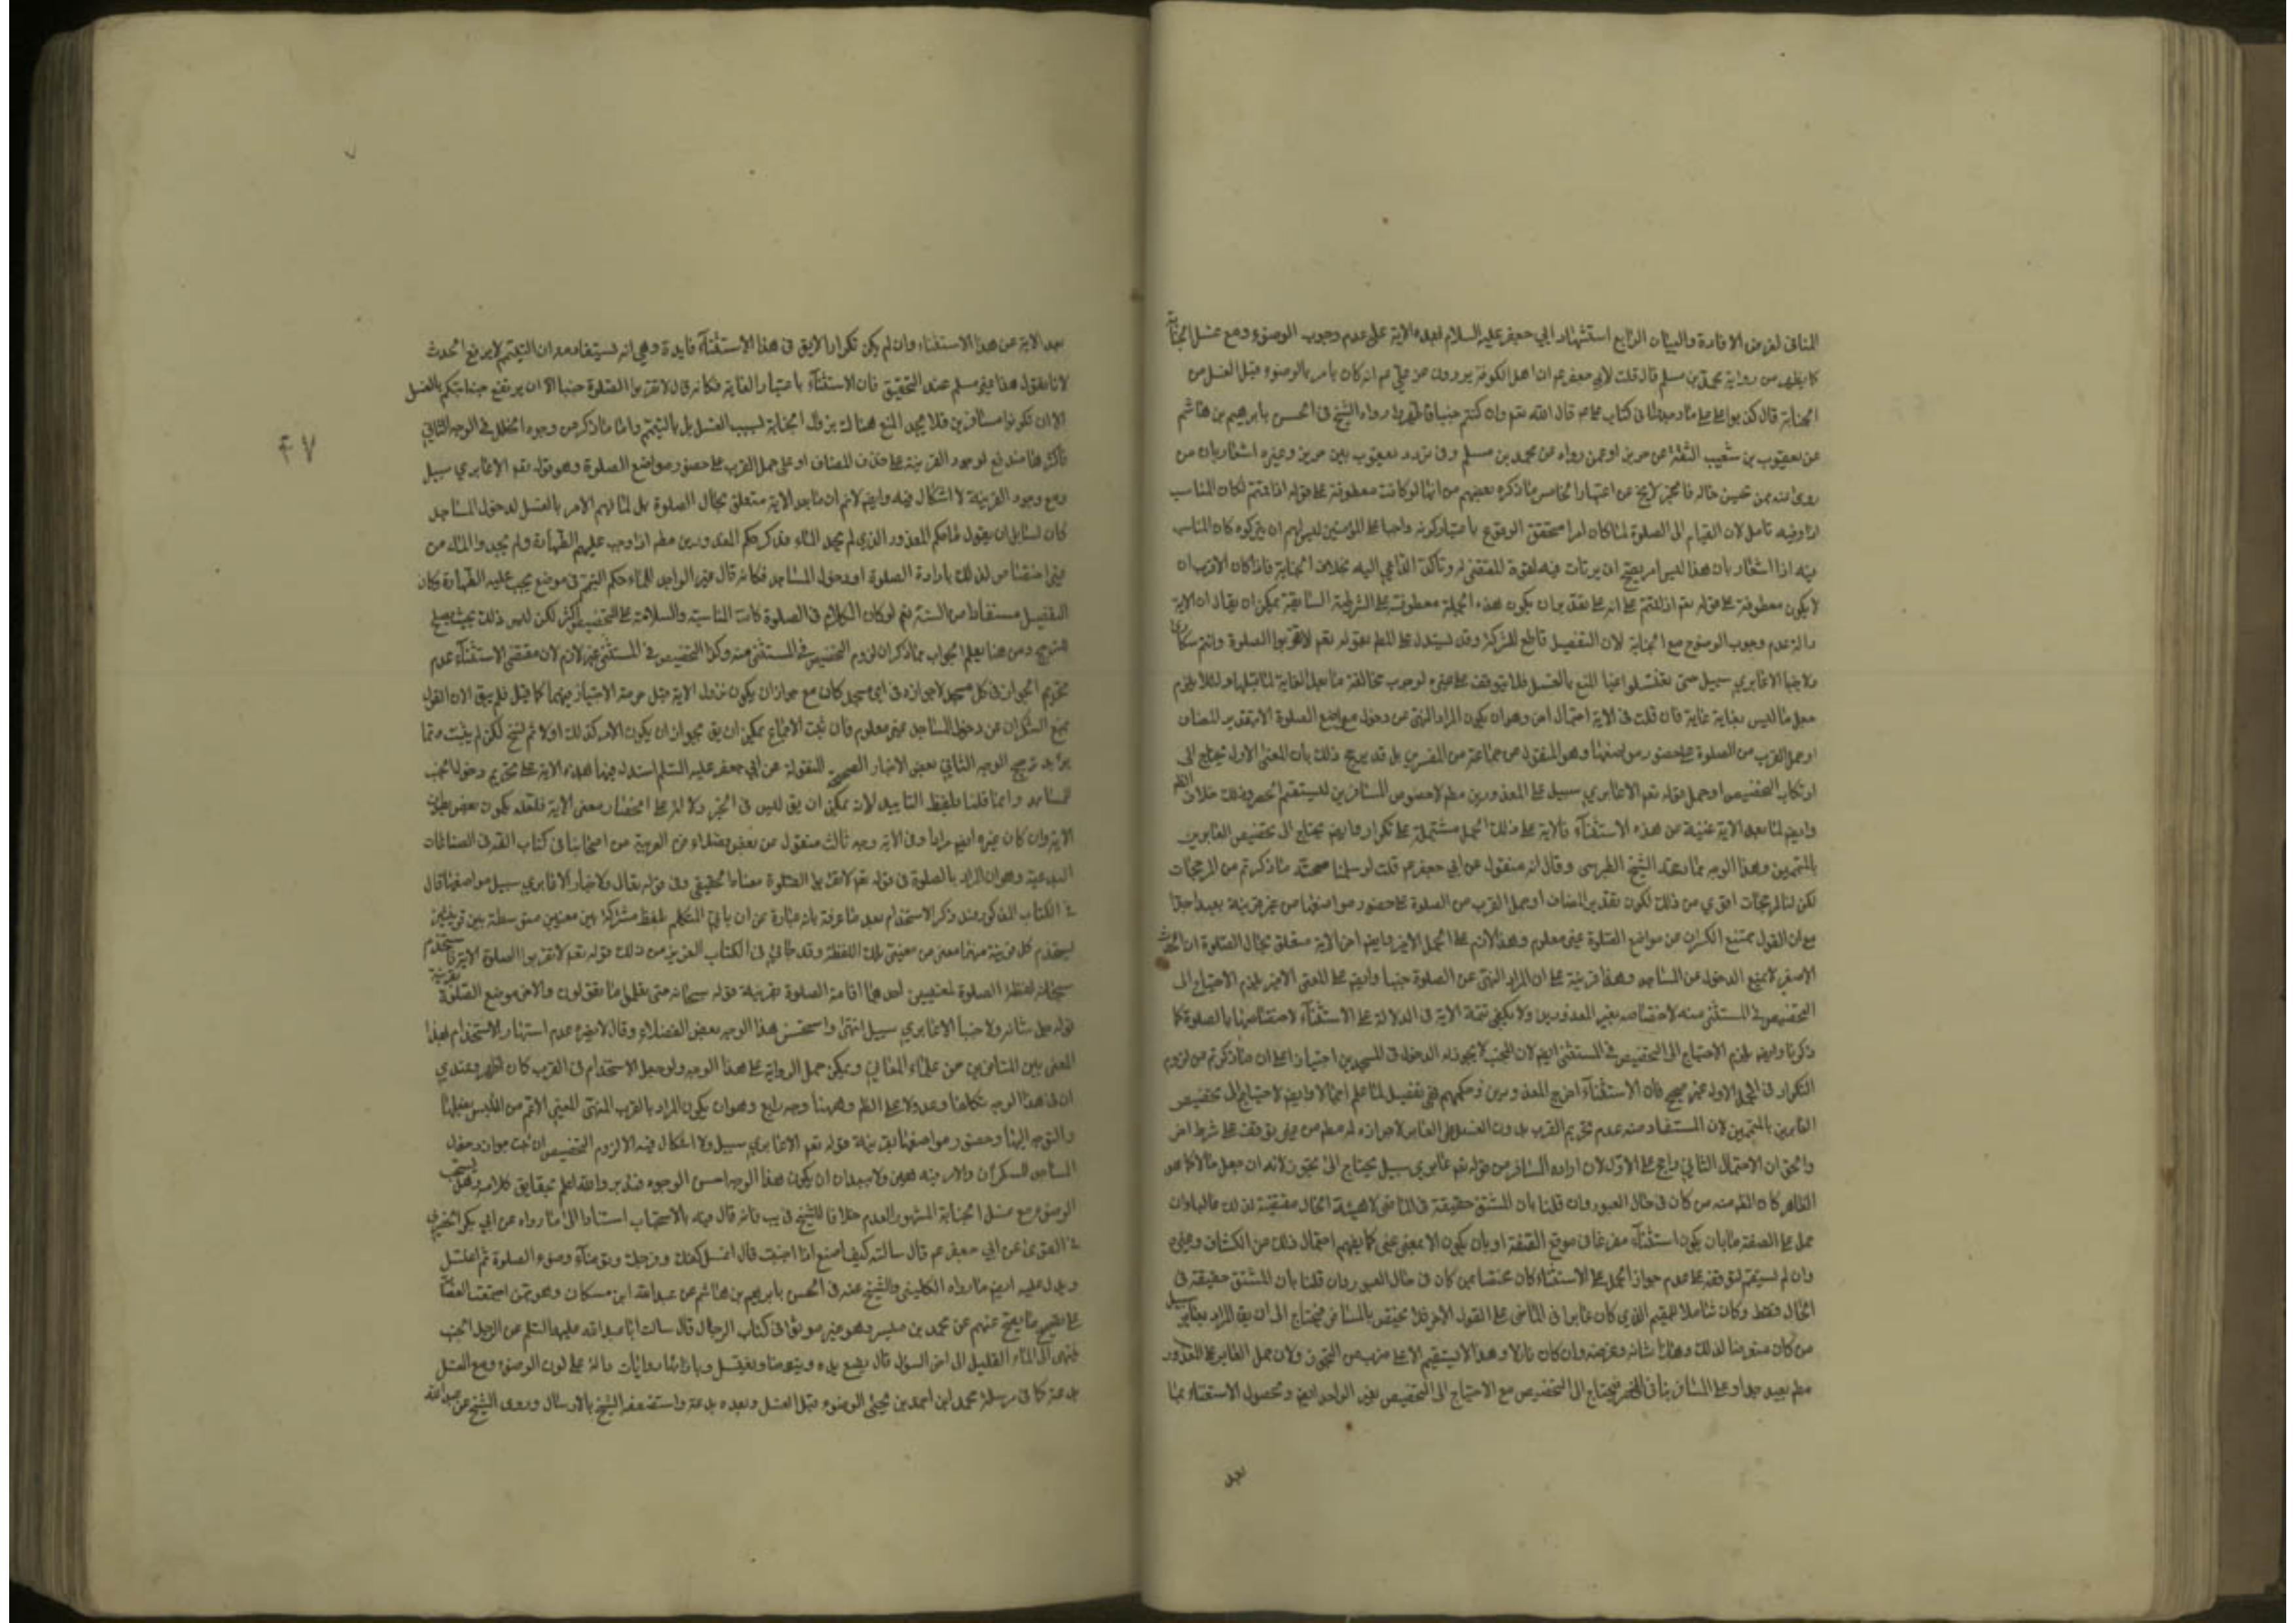 المنافى لغرض الافادة والبيان الرابع استشهاد ابي جعفر عليه السلام بهذه الاية على عدم وجوب الوضوء مع غسل الجنابة
كما يظهر من رواية محمد بن مسلم قال قلت لابي جعفر ع ان اهل الكوفة يروون عن علي ع انه كان يامر بالوضوء قبل الغسل من
الجنابة قال كذبوا على علي ما وجدنا في كتاب علي ع قال الله تعم وان كنتم جنبا فاطهروا رواه الشيخ فى الحسن بابرهيم بن هاشم
عن يعقوب بن شعيب الثقة عن حريز او عمن رواه عن محمد بن مسلم وفى تردد يعقوب بين حريز وغيره اشعار بان من
روى عنه ممن تحسين حاله فالخبر لايخ عن اعتبار الخامس ما ذكره بعضهم من انها لو كانت معطوفة على قوله اذا قمتم لكان المناسب
اذا وفيه تامل لان القيام الى الصلوة لما كان امرا متحقق الوقوع باعتبار كونه واجبا على المؤمنين ليس لهم ان يتركوه كان المناسب
فيه اذا اشعار بان هذا ليس امر يصح ان يرتاب فيه لقوة المقتضى له وتاكد الداعي اليه بخلاف الجنابة فاذا كان الاقرب ان
لا يكون معطوفة على قوله تعم اذا قمتم على انه على تقدير ان يكون هذه الجملة معطوفة على الشرطية السابقة يمكن ان يقال ان الاية
دالة عدم وجوب الوضوء مع الجنابة لان التفصيل قاطع للشركة وقد يستدل على المط بقوله تعم لا تقربوا الصلوة وانتم سكارى
ولا جنبا الا عابري سبيل حتى تغتسلوا غيا المنع بالغسل فلا يتوقف على غيره لوجوب مخالفة ما بعد الغاية لما قبلها ولئلا يلزم
جعل ما ليس بغاية غاية فان قلت فى الاية احتمال اخر وهو ان يكون المراد النهى عن دخول مواضع الصلوة الا بتقدير المضاف
او حمل القرب من الصلوة على حضور مواضعها وهو المنقول عن جماعة من المفسرين بل قد يرجح ذلك بان المعنى الاول يحتاج الى
ارتكاب التخصيص او حمل قوله تعم الا عابري سبيل على المعذورين مطم لا خصوص المسافرين ليستقيم الحصر وذلك خلاف الظم
وايضم لما بعد الاية غنية عن هذه الاستثناء فالاية على ذلك الحمل مشتملة على تكرار وايضم يحتاج الى تخصيص العابرين
بالمتيممين وهذا الوجه مما رجحه الشيخ الطبرسى وقال انه منقول عن ابي جعفر ع قلت لو سلمنا صحة ما ذكرتم من المرجحات
لكن لنا مرجحات اقوى من ذلك لكون تقدير المضاف او حمل القرب من الصلوة على حضور مواضعها من غير قرينة بعيدا جدا
مع ان القول بمنع السكران من مواضع الصلوة غير معلوم وهذا لازم على الحمل الاخير وايضم اخر الاية متعلق بحال الصلوة اذ الحدث
الاصغر لا يمنع الدخول عن المساجد وهذا قرينة على ان المراد النهى عن الصلوة جنبا وايضم على المعنى الاخير يلزم الاحتياج الى
التخصيص فى المستثنى منه لاختصاصه بغير المعذورين ولا يكفى تتمة الاية فى الدلالة على الاستثناء لاختصاصها بالصلوة كما
ذكرنا وايضم يلزم الاحتياج الى التخصيص فى المستثنى ايضم لان الجنب لا يجوز له الدخول فى المسجدين اختيارا على ان ما ذكرتم من لزوم
التكرار فى الحمل الاول غير صحيح فان الاستثناء اخرج المعذورين وحكمهم فى تفصيل لما علم اجمالا وايضم لا حتياج الى تخصيص
العابرين بالمتيممين لان المستفاد منه عدم تحريم القرب بدون الغسل على العابر لا جوازه له مطم من غير توقف على شرط اخر
والحق ان الاحتمال الثاني راجح على الاول لان ارادة المسافر من قوله تعم عابري سبيل يحتاج الى تجوز لانه ان جعل حالا كما هو
الظاهر كان الظم منه من كان فى حال العبور وان قلنا بان المشتق حقيقة فى الماضى لا هيئة الحال مقتضية لذلك
حمل على الصفة فاما بان يكون استثناء مفرغا فى موقع الصفة او بان يكون الا بمعنى غير كما يفهم احتمال ذلك من الكشاف وغيره
وان لم يستقم لتوقفه على عدم جواز الحمل على الاستثناء كان مختصا بمن كان فى حال العبور وان قلنا بان المشتق حقيقة فى
الحال فقط وكان شاملا للمقيم الذي كان عابرا فى الماضى على القول الاخر فلا يختص بالمسافر فيحتاج الى ان يق المراد بعابري سبيل
من كان متعرضا لذلك وهذا شانه وغرضه وان كان نازلا وهذا لا يستقيم الا على ضرب من التجوز ولان حمل العابر على المعذور
مطم بعيد جدا وعلى المسافر ينافى الحصر فيحتاج الى التخصيص مع الاحتياج الى التخصيص بغير الواجد ايضم وتحصول الاستغناء بما
بعد
بعد الاية عن هذا الاستثناء وان لم يكن تكرارا لايق فى هذا الاستثناء فايدة وهي انه يستفاد منه ان التيمم لايرفع الحدث
لانا نقول هذا غير مسلم عند التحقيق فان الاستثناء باعتبار الغاية فكانه قال لا تقربوا الصلوة جنبا الا ان يرتفع جنابتكم بالغسل
الا ان تكونوا مسافرين فلا يجب المنع هناك بزوال الجنابة بسبب الغسل بل بالتيمم واما ما ذكر من وجوه الخلل فى الوجه الثاني
فاكثرها مندفع لوجود القرينة على حذف المضاف او على حمل القرب على حضور مواضع الصلوة وهو قوله تعم الا عابري سبيل
ومع وجود القرينة لا اشكال فيه وايضم لانم ان ما بعد الاية متعلق بحال الصلوة بل لما لهم الامر بالغسل لدخول المساجد
كان لسايل ان يقول فما حكم المعذور الذي لم يجد الماء فذكر حكم المعذورين مطم اذا وجب عليهم الطهارة ولم يجدوا الماء من
غير اختصاص لذلك بارادة الصلوة او دخول المساجد فكانه قال غير الواجد للماء حكم التيمم فى موضع يجب عليه الطهارة وكان
التفصيل مستفادا من السنة نعم لو كان الكلام فى الصلوة كانت المناسبة والسلامة على التخصيص اكثر لكن ليس ذلك بحيث يصلح
للترجيح ومن هنا يعلم الجواب عما ذكر ان لزوم التخصيص فى المستثنى منه وكذا التخصيص فى المستثنى غير لازم لان مقتضى الاستثناء عدم
تحريم الجواز فى كل مسجد لا جوازه فى اي مسجد كان مع جواز ان يكون نزول الاية قبل حرمة الاجتياز فيهما كما قيل فلم يبق الا ان القول
بمنع السكران عن دخول المساجد غير معلوم فان ثبت الاجماع يمكن ان يق يجوز ان يكون الامر كذلك اولا ثم نسخ لكن لم يثبت ومما
يؤيد ترجيح الوجه الثاني بعض الاخبار الصحيحة المنقولة عن ابي جعفر عليه السلم استدل فيها بهذه الاية على تحريم دخول الجنب
المساجد وانما قلنا بلفظ التاييد لانه يمكن ان يق ليس فى الخبر دلالة على انحصار معنى الاية فلعله يكون بعض بطون
الاية وان كان غيره ايضم مرادا وفى الاية وجه ثالث منقول عن بعض فضلاء فن العربية من اصحابنا فى كتاب الفه فى الصناعات
البديعية وهو ان المراد بالصلوة فى قوله تعم لا تقربوا الصلوة معناها الحقيقي وفى قوله تعالى ولا جنبا الا عابري سبيل مواضعها قال
فى الكتاب المذكور عند ذكر الاستخدام بعد ما عرفه بانه عبارة عن ان ياتي المتكلم بلفظ مشترك بين معنيين متوسطة بين قرينتين
يستخدم كل قرينة منهما معنى من معنيى تلك اللفظة وقد جاء فى الكتاب العزيز من ذلك قوله تعم لا تقربوا الصلوة الاية فاستخدم
سبحانه لفظة الصلوة لمعنيين احدهما اقامة الصلوة بقرينة قوله سبحانه حتى تعلموا ما تقولون والاخر موضع الصلوة بقرينة
قوله جل شانه ولا جنبا الا عابري سبيل انتهى واستحسن هذا الوجه بعض الفضلاء وقال لا يضره عدم اشتهار الاستخدام بهذا
المعنى بين المتاخرين من علماء المعاني ويمكن حمل الرواية على هذا الوجه ولو جعل الاستخدام فى القرب كان اظهر وعندي
ان فى هذا الوجه تكلفا وعدولا على الظم وههنا وجه رابع وهو ان يكون المراد بالقرب المنهى المعنى الاعم من التلبس بفعلها
والتوجه اليها وحضور مواضعها بقرينة قوله تعم الا عابري سبيل ولا اشكال فيه الا لزوم التخصيص ان ثبت جواز دخول
المساجد للسكران والامر فيه هين ولا يبعد ان يكون هذا الوجه احسن الوجوه فتدبر والله اعلم بحقايق كلامه وهل يستحب
الوضوء مع غسل الجنابة المشهور العدم خلافا للشيخ فى يب فانه قال فيه بالاستحباب استنادا الى ما رواه عن ابي بكر الحضرمي
فى القوى عن ابي جعفر ع قال سالته كيف اصنع اذا اجنبت قال اغسل كفك وفرجك وتوضاء وضوء الصلوة ثم اغتسل
ويدل عليه ايضم ما رواه الكليني والشيخ عنه فى الحسن بابرهيم بن هاشم عن عبد الله ابن مسكان وهو ممن اجمعت العصابة
على تصحيح ما يصح عنهم عن محمد بن ميسر وهو غير موثق فى كتاب الرجال قال سالت ابا عبد الله عليه السلم عن الرجل الجنب
ينتهى الى الماء القليل الى اخر السؤال قال يضع يده ويتوضا ويغتسل وبازائها روايات دالة على كون الوضوء مع الغسل
بدعة كما فى مرسلة محمد ابن احمد بن يحيى الوضوء قبل الغسل وبعده بدعة واستضعفه الشيخ بالارسال وروى الشيخ عن عبد الله
۴۷